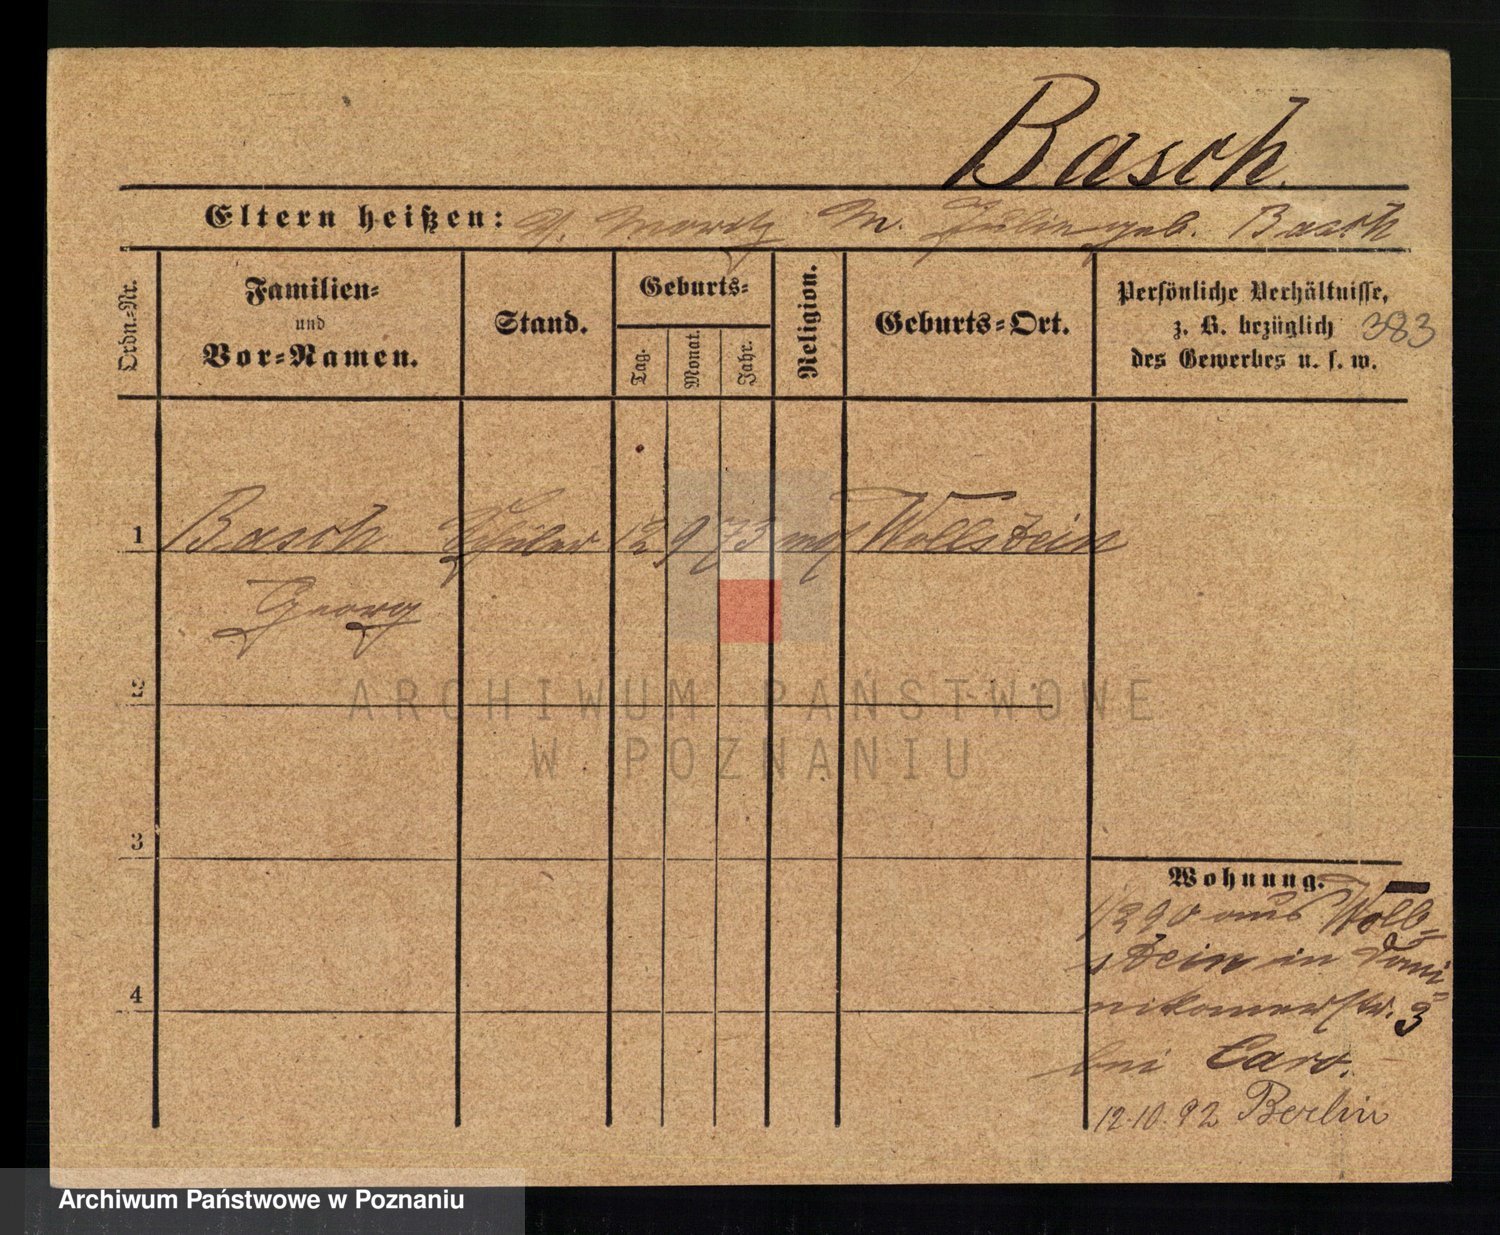 Basch.
Eltern heißen: V. Moritz M. Julie geb. Basch
Ordn.-Nr.
Familien-
und
Vor-Namen.
Stand.
Geburts-
Tag.
Monat.
Jahr.
Religion.
Geburts-Ort.
Persönliche Verhältnisse,
z. B. bezüglich
des Gewerbes u. s. w.
383
1 Basch Schüler 12 9 73 mos Wollstein
Georg
2
3
4
Wohnung.
90 aus Woll-
stein in Domi-
nikanerstr. 3
bei Caro.
12.10.92 Berlin
ARCHIWUM PAŃSTWOWE
W POZNANIU
Archiwum Państwowe w Poznaniu